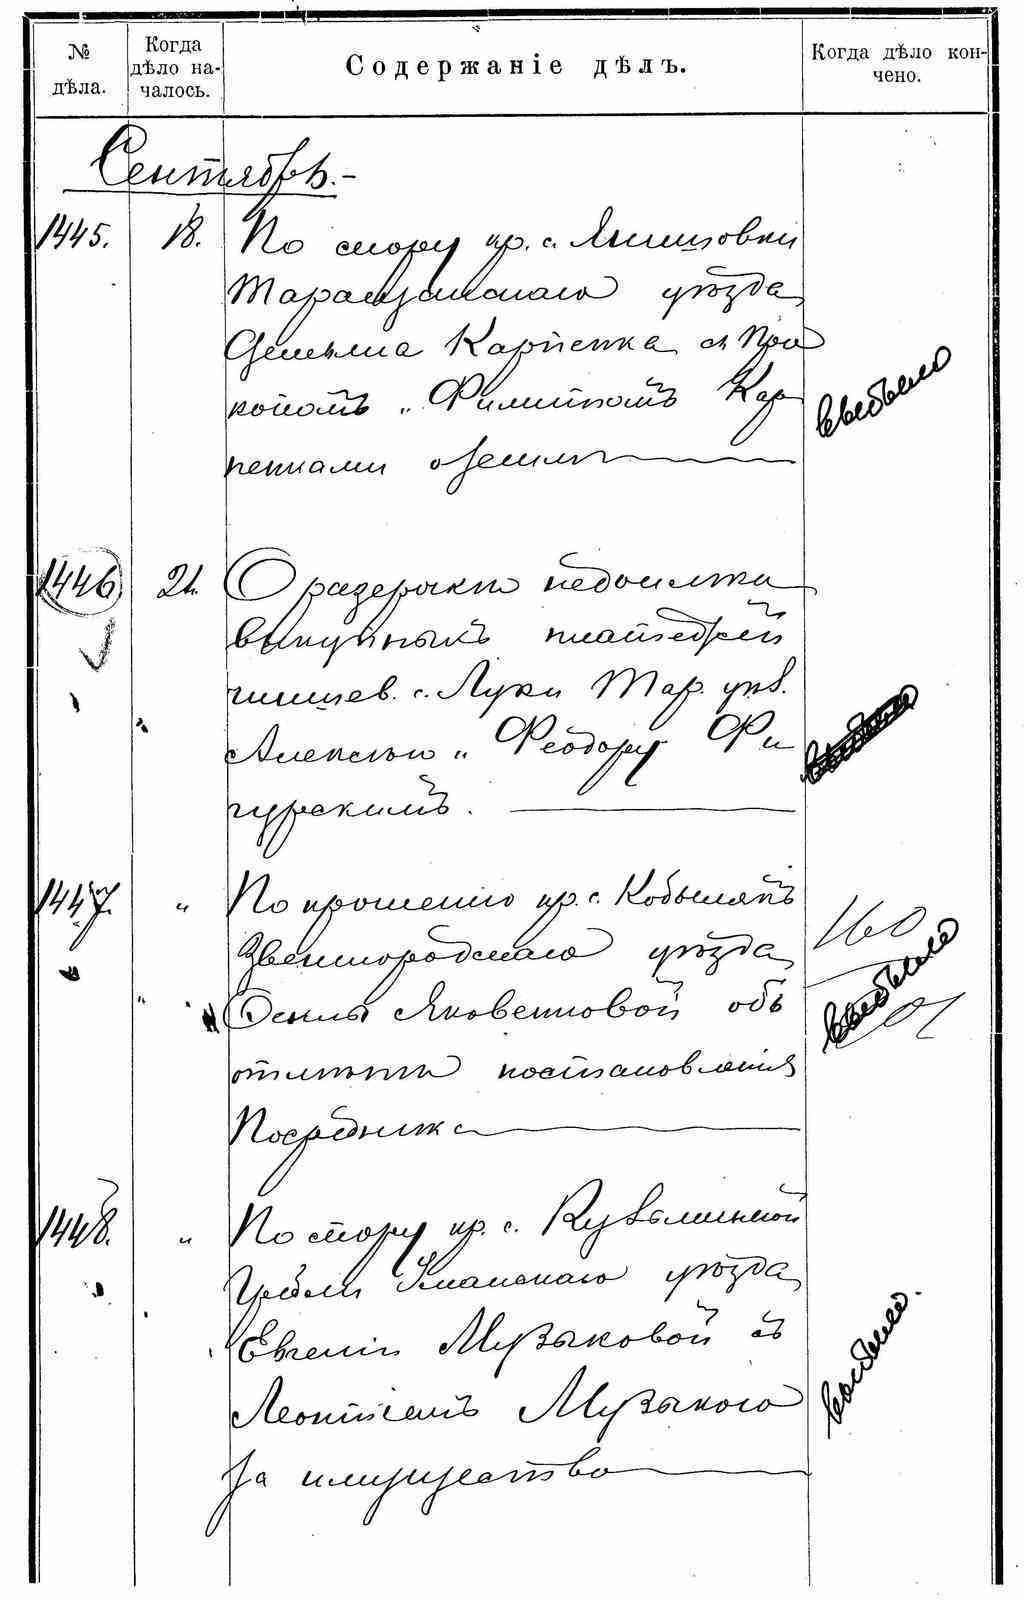 № дѣла.
Когда дѣло на-
чалось.
Содержаніе дѣлъ.
Когда дѣло кон-
чено.
Сентябрь.-
1445. 18. По спору кр. с. Янишовки
Таращанскаго уѣзда
Демьяна Карпенка съ Про
копомъ и Филиппомъ Кар
пенками о землѣ
выбыло
1446 21. О разсрочкѣ недоимки
выкупныхъ платежей
чиншев. с. Луки Тар. уѣз.
Алексѣю и Феодору Фи
гурскимъ.
выбыло
1447. " По прошенію кр. с. Кобылякъ
Звенигородскаго уѣзда
Яковенковой объ
отмѣнѣ постановленія
Посредника
160
выбыло
1448. " По спору кр. с. Кузьминской
Гребли Уманскаго уѣзда
Евгеніи Музыковой съ
Леонтіемъ Музыкою
за имущество
выбыло.